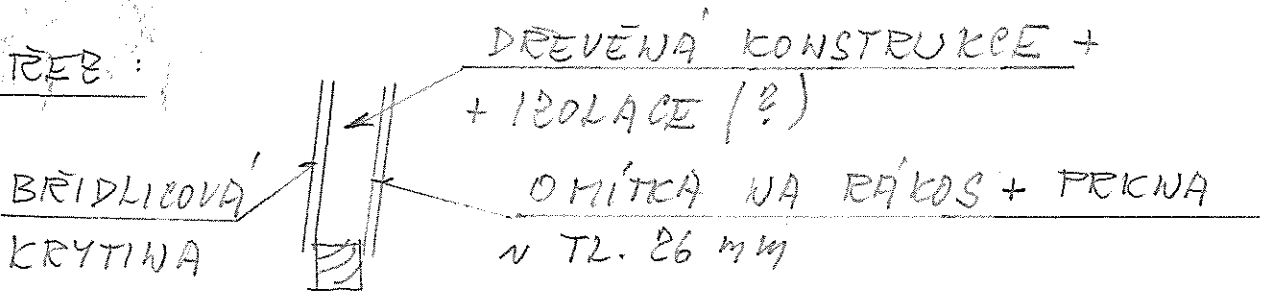 ŘEZ :
DŘEVĚNÁ KONSTRUKCE +
+ IZOLACE (?)
BŘIDLICOVÁ
KRYTINA
OMÍTKA NA RÁKOS + PRKNA
v TL. 26 mm